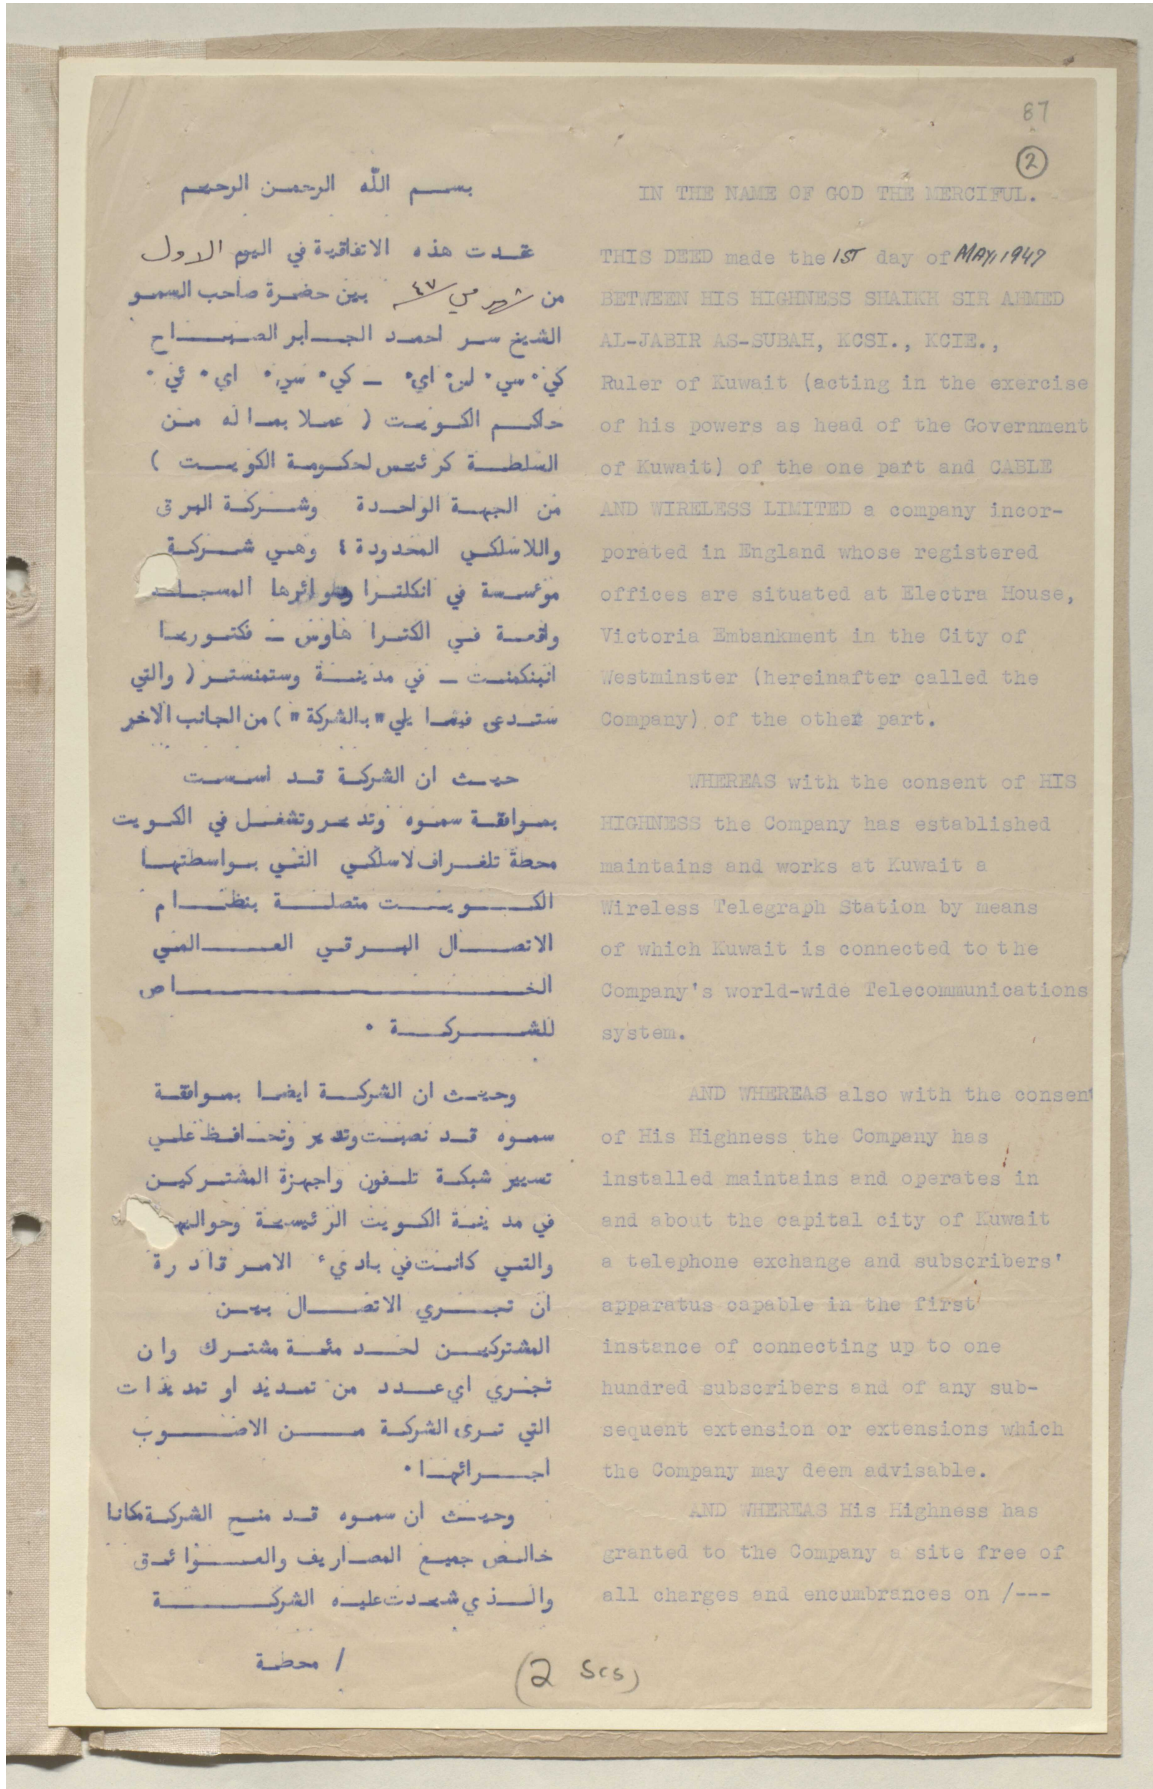 87
2
بسم الله الرحمن الرحيم
عقدت هذه الاتفاقية في اليوم الاول
من شهر مي ٤٧ بين حضرة صاحب السمو
الشيخ سر احمد الجابر الصباح
كي٠ سي٠ اس٠ اي٠ ــ كي٠ سي٠ اي٠ ئي٠
حاكم الكويت ( عملا بماله من
السلطة كرئيس لحكومة الكويت )
من الجهة الواحدة وشركة البرق
واللاسلكي المحدودة ؛ وهي شركة
مؤسسة في انكلترا ودوائرها المسجلة
واقعة في الكترا هاوس ــ فكتوريا
انبنكمنت ــ في مدينة وستمنستر ( والتي
ستدعى فيما يلي "بالشركة" ) من الجانب الاخر
حيث ان الشركة قد اسست
بموافقة سموه وتدير وتشغل في الكويت
محطة تلغراف لاسلكي التي بواسطتها
الكويت متصلة بنظام
الاتصال البرقي العالمي
الخاص
للشركة ٠
وحيث ان الشركة ايضا بموافقة
سموه قد نصبت وتدير وتحافظ على
تسيير شبكة تلفون واجهزة المشتركين
في مدينة الكويت الرئيسية وحواليها
والتي كانت في بادىء الامر قادرة
ان تجري الاتصال بين
المشتركين لحد مئة مشترك وان
تجري اي عدد من تمديد او تمديدات
التي ترى الشركة من الاصوب
اجرائها ٠
وحيث ان سموه قد منح الشركة مكانا
خالص جميع المصاريف والعوائق
والذي شيدت عليه الشركة
/ محطة
IN THE NAME OF GOD THE MERCIFUL.
THIS DEED made the 1ST day of MAY, 1947
BETWEEN HIS HIGHNESS SHAIKH SIR AHMED
AL-JABIR AS-SUBAH, KCSI., KCIE.,
Ruler of Kuwait (acting in the exercise
of his powers as head of the Government
of Kuwait) of the one part and CABLE
AND WIRELESS LIMITED a company incor-
porated in England whose registered
offices are situated at Electra House,
Victoria Embankment in the City of
Westminster (hereinafter called the
Company) of the other part.
WHEREAS with the consent of HIS
HIGHNESS the Company has established
maintains and works at Kuwait a
Wireless Telegraph Station by means
of which Kuwait is connected to the
Company's world-wide Telecommunications
system.
AND WHEREAS also with the consent
of His Highness the Company has
installed maintains and operates in
and about the capital city of Kuwait
a telephone exchange and subscribers'
apparatus capable in the first
instance of connecting up to one
hundred subscribers and of any sub-
sequent extension or extensions which
the Company may deem advisable.
AND WHEREAS His Highness has
granted to the Company a site free of
all charges and encumbrances on /---
(2 scs)